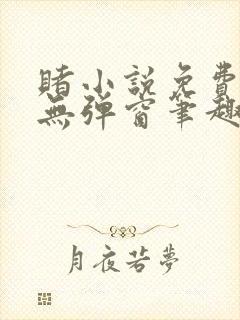 賭小說免費
無彈窗筆趣
月夜若夢